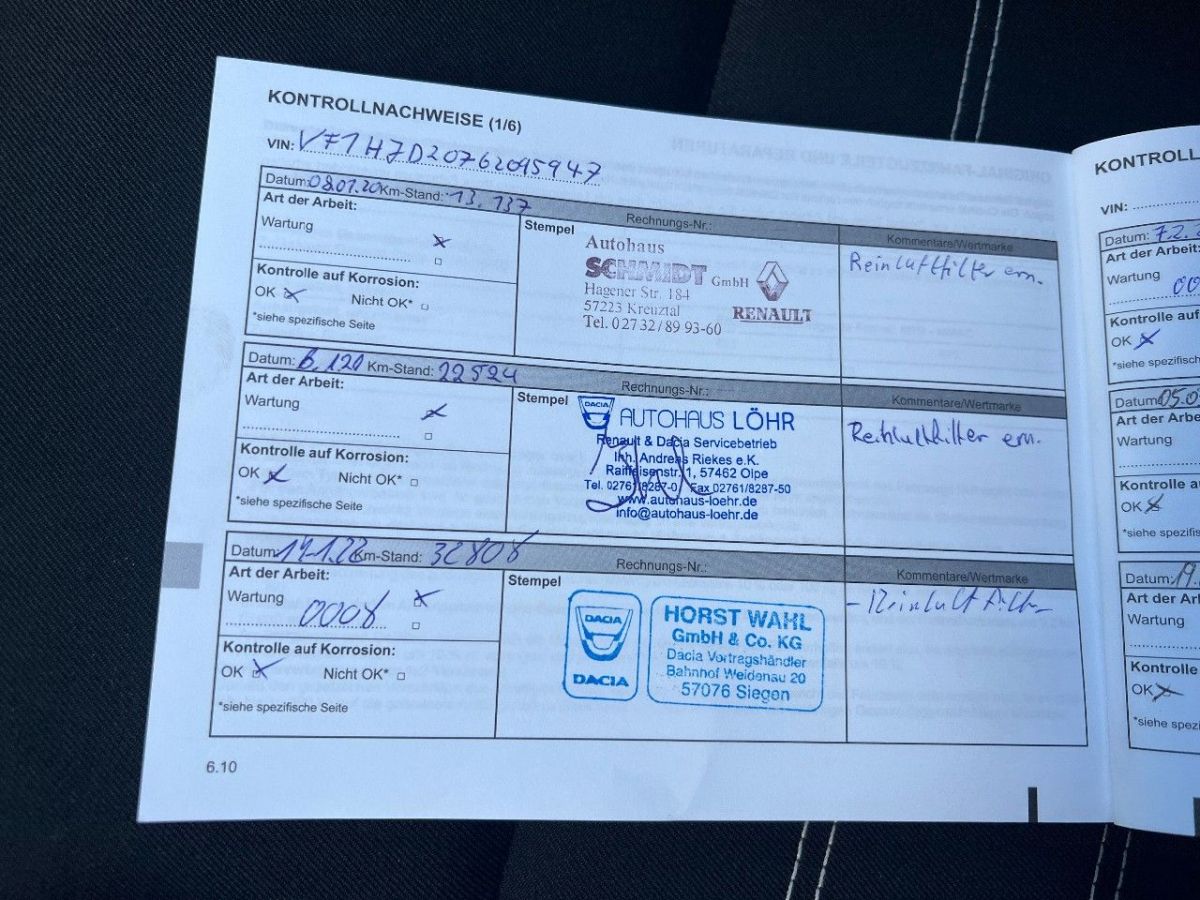 KONTROLLNACHWEISE (1/6)
VIN: VF1HJD20762095947
Datum: 08.01.20 Km-Stand: 13.137 Rechnungs-Nr.: Kommentare/Wertmarke
Art der Arbeit:
Wartung
Kontrolle auf Korrosion:
OK Nicht OK*
*siehe spezifische Seite
Stempel
Autohaus
SCHMIDT GmbH
Hagener Str. 184
57223 Kreuztal
Tel. 02732/89 93-60
RENAULT
Reinluftfilter ern.
Datum: Km-Stand: 22524 Rechnungs-Nr.: Kommentare/Wertmarke
Art der Arbeit:
Wartung
Kontrolle auf Korrosion:
OK Nicht OK*
*siehe spezifische Seite
Stempel
DACIA AUTOHAUS LÖHR
Renault & Dacia Servicebetrieb
Inh. Andreas Riekes e.K.
Raiffeisenstr. 1, 57462 Olpe
Tel. 02761/8287-0 Fax 02761/8287-50
www.autohaus-loehr.de
info@autohaus-loehr.de
Reinluftfilter ern.
Datum: Km-Stand: 32808 Rechnungs-Nr.: Kommentare/Wertmarke
Art der Arbeit:
Wartung
0008
Kontrolle auf Korrosion:
OK Nicht OK*
*siehe spezifische Seite
Stempel
DACIA
DACIA
HORST WAHL
GmbH & Co. KG
Dacia Vertragshändler
Bahnhof Weidenau 20
57076 Siegen
- Reinluftfilter -
6.10
KONTROLL
VIN:
Datum: 7.2.
Art der Arbeit:
Wartung
00
Kontrolle auf
OK
*siehe spezifisch
Datum: 05.0
Art der Arbe
Wartung
Kontrolle au
OK
*siehe spezifis
Datum: 19.
Art der Arb
Wartung
Kontrolle
OK
*siehe spezi